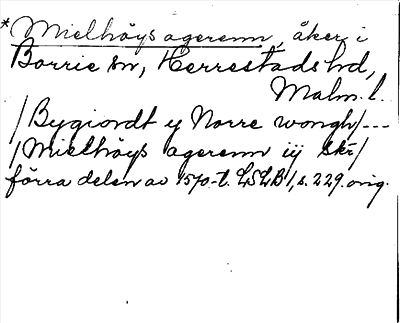 *Mielhöys agerenn, åker i
Borrie sn, Herrestads hd,
Malm. l.
/Bygiordt ij Norre wongh/---
/Mielhöys agerenn iij skr/
förra delen av 1570-t. LSLB 1, s. 229. orig.